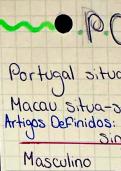 P.
Portugal situ
Macau situa-s
Artigos Definidos:
sin
Masculino